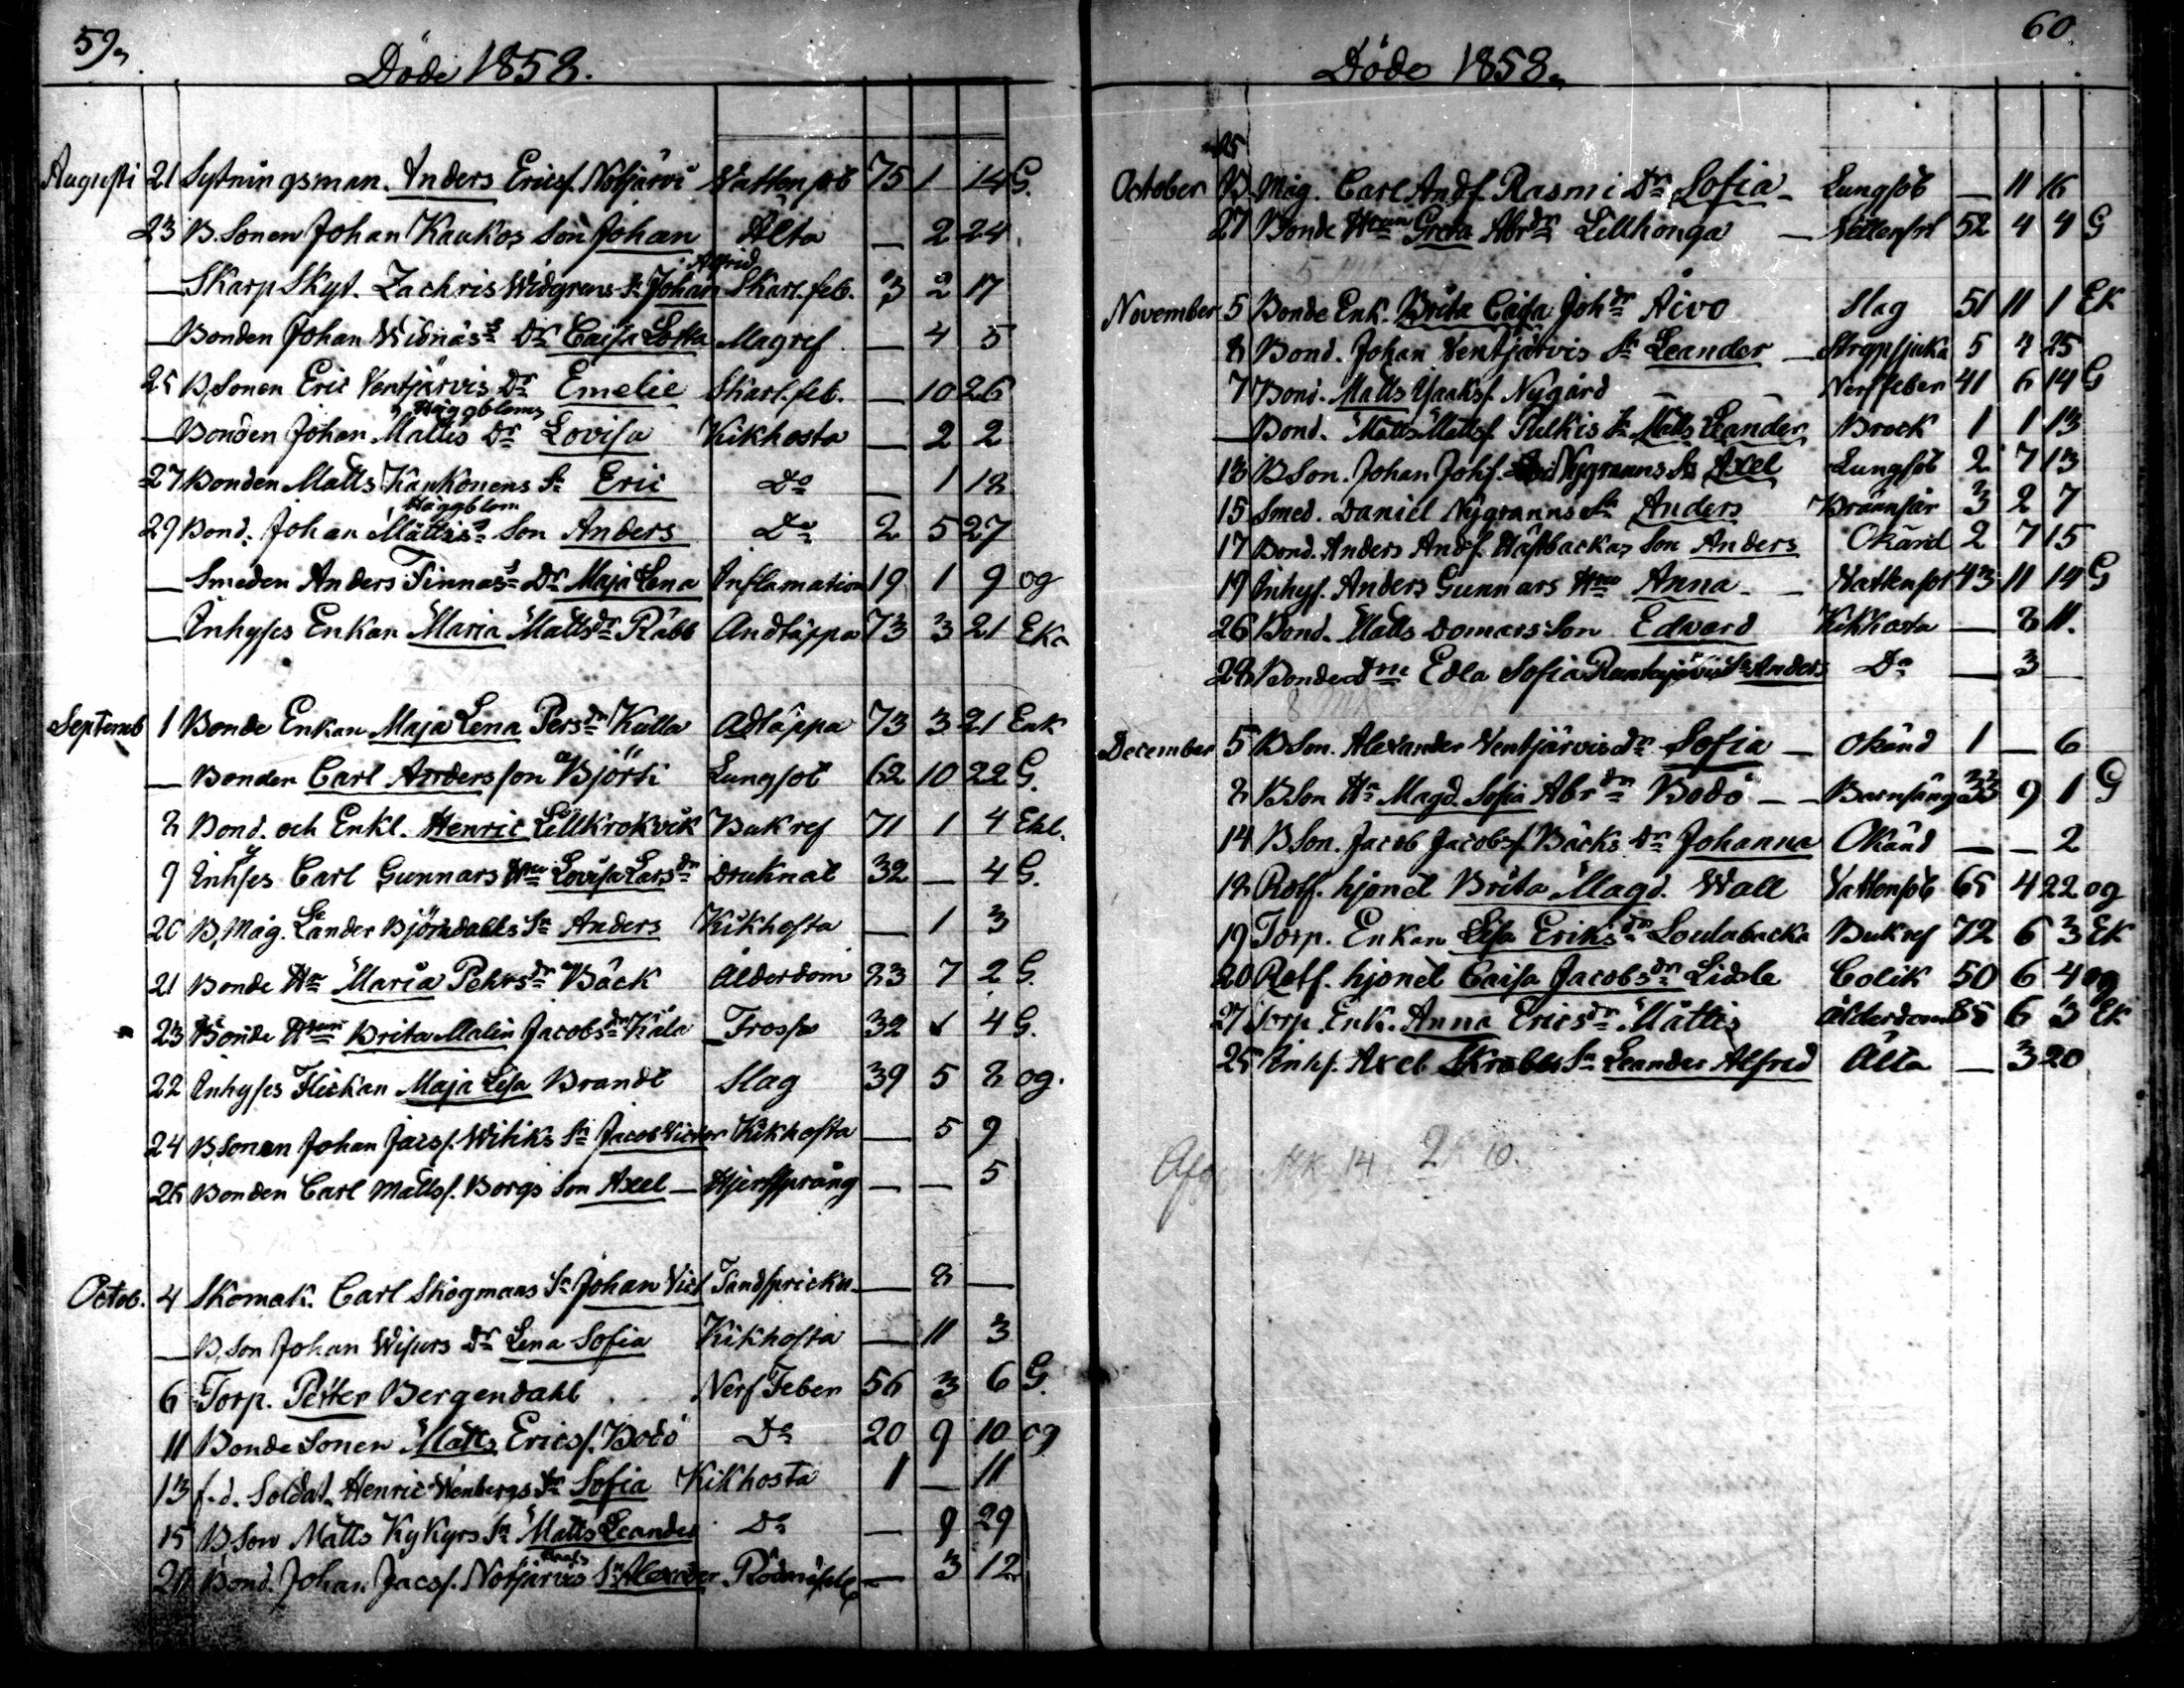 59.
Döde 1858.
Augusti 21 Sytningsman. Anders Ericsf. Notjärvi Vattensot 75 1 14 G.
23 B. Sonen Johan Kaukos Son Johan Älta — 2 24
Alfrid
— Skarp Skyt. Zachris Widgrens Sn Johan Skarl. feb. 3 2 17
— Bonden Johan Widnäs's Dr Caisa Lotta Magref — 4 5
25 B. Sonen Eric Ventjärvis Dr Emelie Skarl. feb. — 10 26
Häggbloms
— Bonden Johan Mattis Dr Lovisa Kikhosta — 2 2
27 Bonden Matts Kaukonens Sn Eric Do — 1 18
Häggblom
29 Bond. Johan Mattis's Son Anders Do 2 5 27
— Smeden Anders Finnas's Dr Maja Lena Inflamation 19 1 9 og
— Inhyses Enkan Maria Mattsdr Räbb Andtäppa 73 3 21 Eka
Septemb 1 Bonde Enkan Maja Lena Persdr Kulla Adtäppa 73 3 21 Enk
— Bonden Carl Andersson Björk Lungsot 62 10 22 G.
8 Bond. och Enkl. Henric Lillkrokvik Bukref 71 1 4 Ekl.
9 Inhyses Carl Gunnars Hru Lovisa Larsdr Druknat 32 — 4 G.
20 B. Måg. Leander Björndahls Sn Anders Kikhosta — 1 3
21 Bonde Hu Maria Pehrsdr Bäck Ålderdom 83 7 2 G.
23 Bonde Hrun Brita Malin Jacobsdr Kåla Frossa 32 1 4 G.
22 Inhyses Flickan Maja Lisa Brandt Slag 39 5 8 og.
24 B. Sonen Johan Jacsf. Witiks Sn Jacob Victor Kikhosta — 5 9
25 Bonden Carl Mattsf. Borgs Son Axel — Hjertsprång — — 5
Octob. 4 Skomak. Carl Skogmans Sn Johan Vict Tandspricka — 8 —
— B. Son Johan Wisurs Dr Lena Sofia Kikhosta — 11 3
6 Torp. Petter Bergendahl Nerf Feber 56 3 6 G.
11 Bonde Sonen Matts Ericsf. Bodö Do 20 9 10 og
13 f. d. Soldat. Henric Wenbergs Dr Sofia Kikhosta 1 — 11
15 B. Son Matts Kykyrs Sn Matts Leander Do — 9 29
20 Bond. Johan Jacsf. Notjärvis Sn Alexander — 3 12
60.
Döde 1858.
25
October B. Måg. Carl Andf. Rasmi Dr Sofia — Lungsot — 11 16
27 Bonde Hrun Greta Abrdr Lillhonga — Vattensot 52 4 4 G
November 5 Bonde Enk. Brita Caisa Johdr Aivo Slag 51 11 1 Ek
8 Bond. Johan Ventjärvis Sn Leander — Strypsjuka 5 4 25
7 Bond. Matts Isaaksf. Nygård Nerffeber 41 6 14 G
— Bond. Matts Mattsf. Pulkis Sn Matts Leander Brock 1 1 13
13 B Son. Johan Johf. Nygranns Sn Axel Lungsot 2 7 13
15 Smed. Daniel Nygranns Sn Anders Brännsår 3 2 7
17 Bond. Anders Andf. Håsbackas Son Anders Okänd 2 7 15
19 Inhys. Anders Gunnars Hru Anna — Vattensot 43 11 14 G
26 Bond. Matts Domars Son Edward Kikhosta — 8 11.
28 Bonde Dr Edla Sofia Rankajärvis Sn Anders Do — 3 —
December 5 B Son. Alexander Ventjärvis dr Sofia — Okänd 1 — 6
8 B Son Hu Magd. Sofia Abrdr Bodö — Barnsäng 33 9 1 G
14 B Son. Jacob Jacobsf. Bäcks Dr Johanna Okänd — — 2
18 Rotf. hjonet Brita Magd. Wall Vattensot 65 4 22 og
19 Torp. Enkan Lisa Eriksdr Loulabacka Bukref 72 6 3 Ek
20 Rotf. hjonet Caisa Jacobsdr Lidda Colik 50 6 4 og
27 Torp. Enk. Anna Ericsdr Mattis Ålderdom 85 6 3 Ek
25 Inhs. Axel Skrabbs Sn Leander Alfred Älta — 3 20